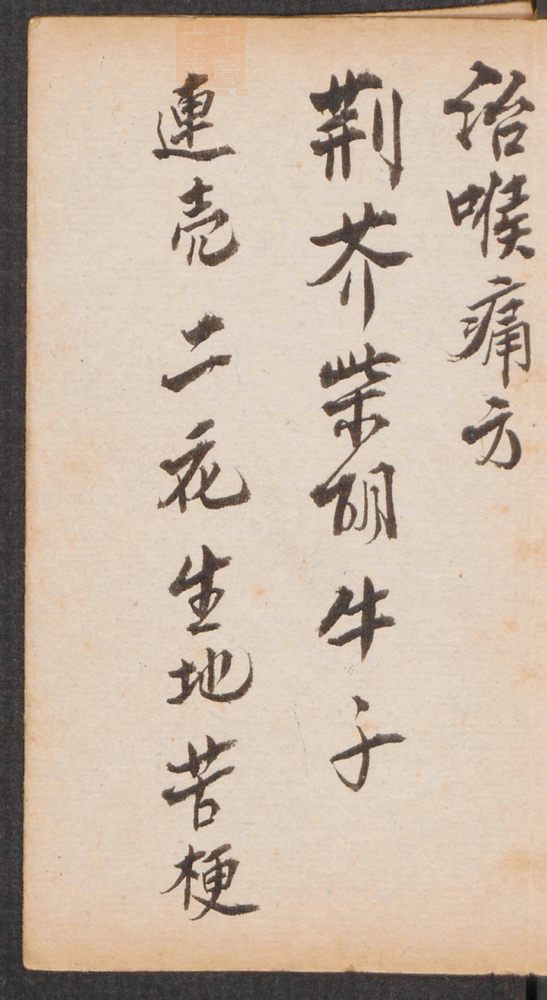 治喉痛方
荆芥柴胡牛子
連壳二花生地苦梗